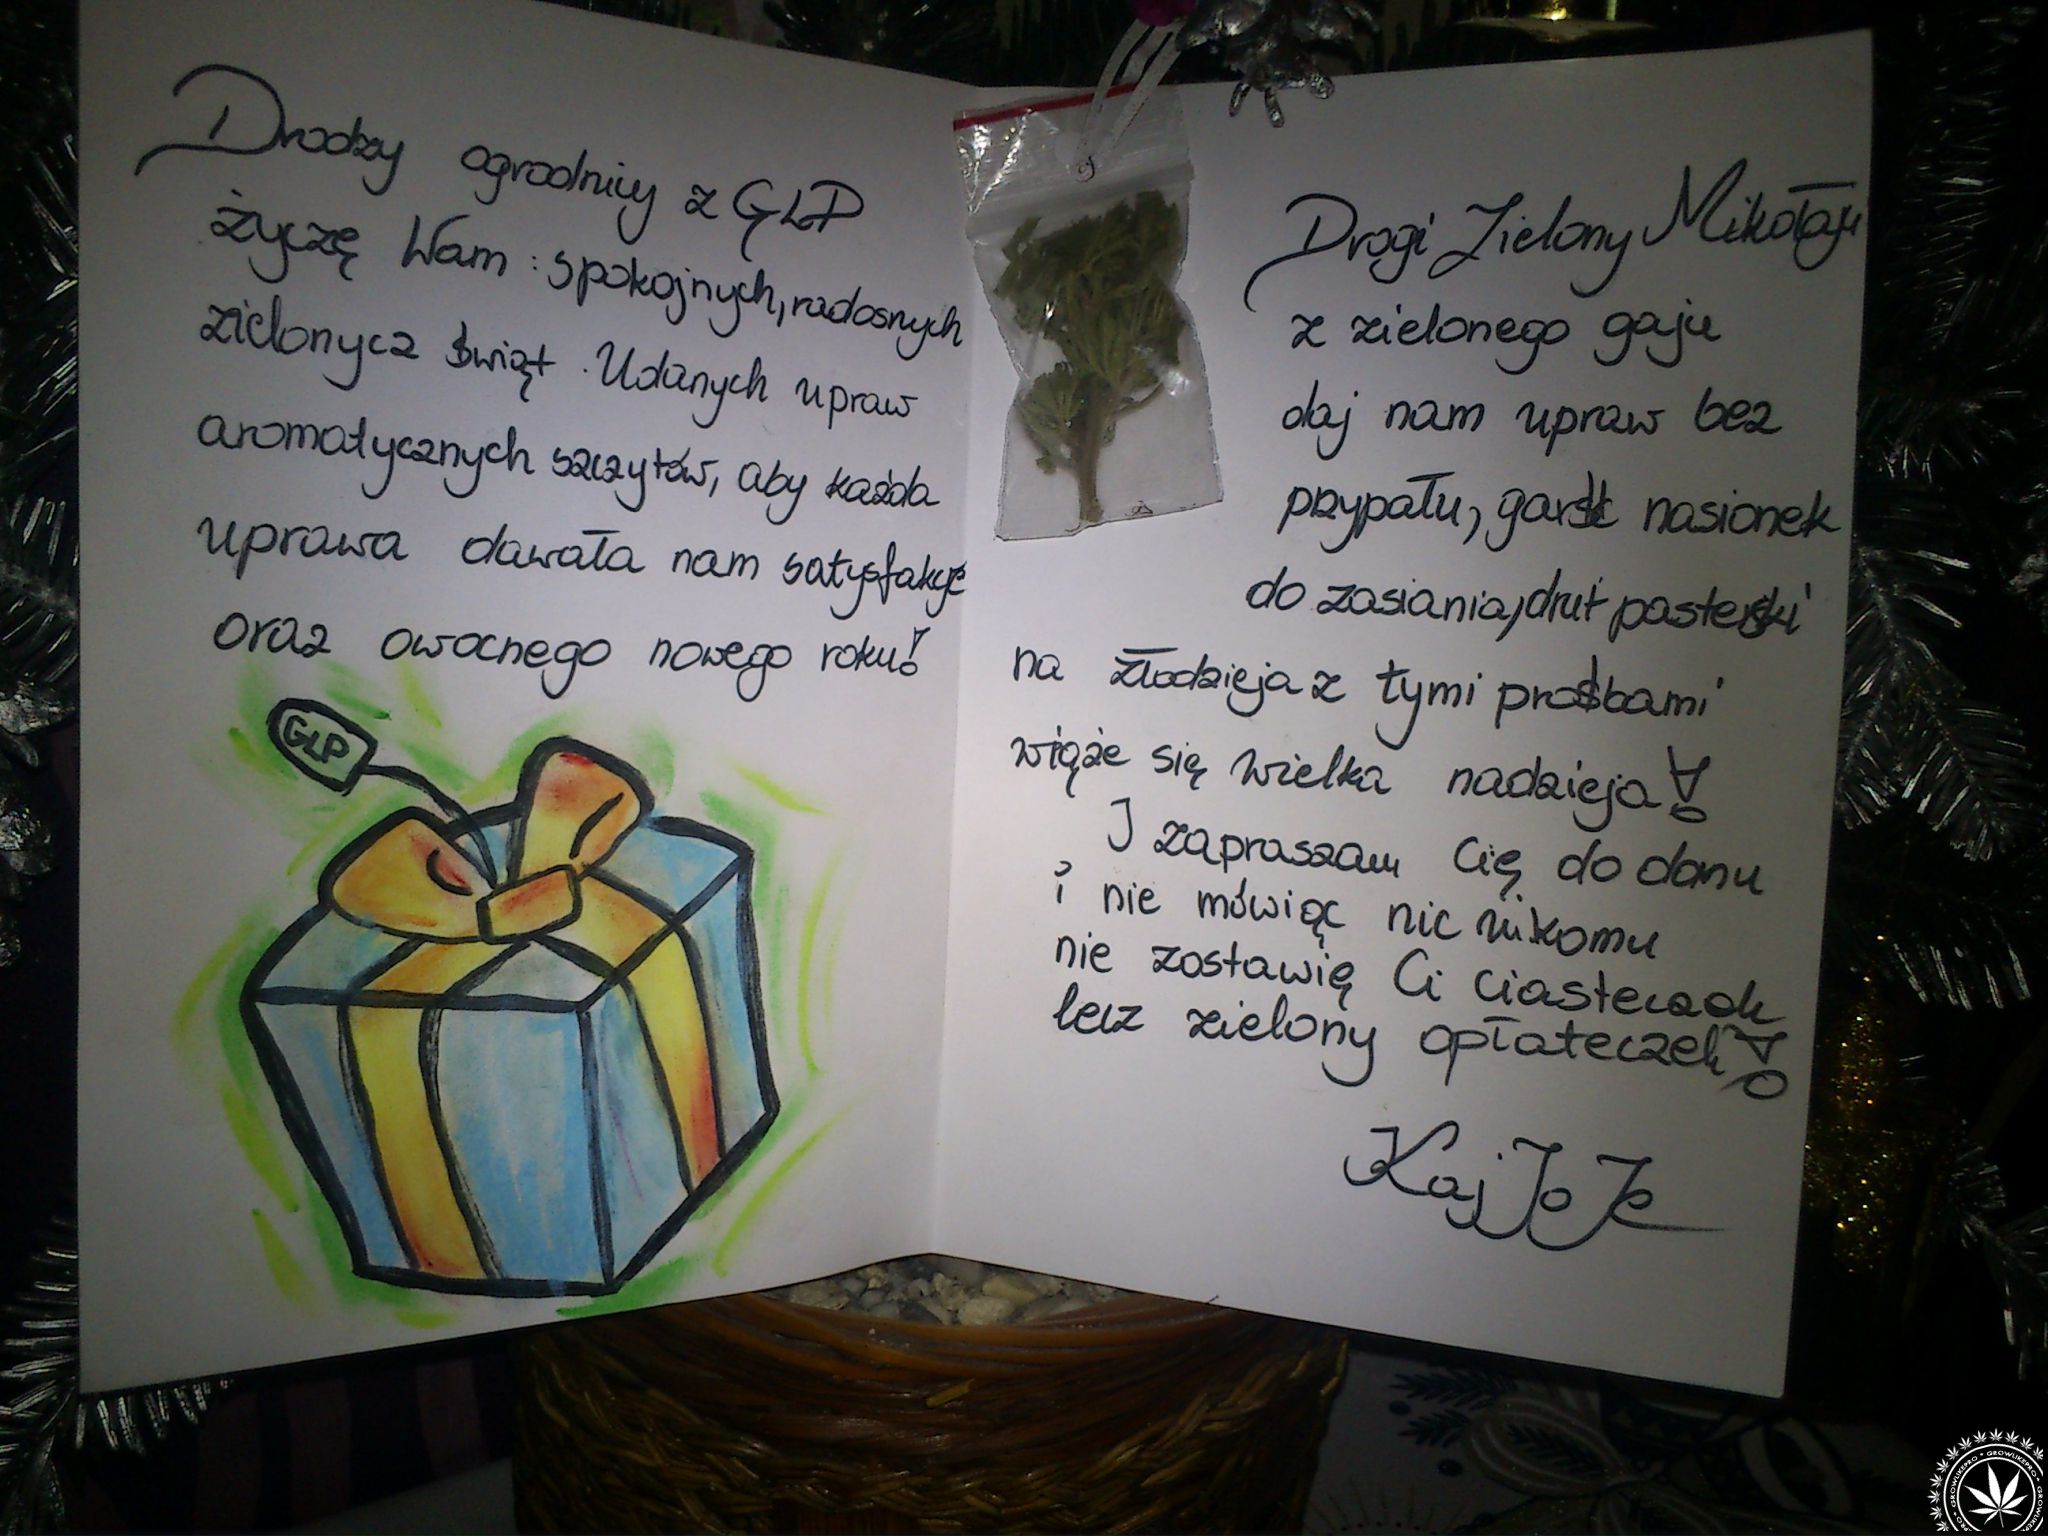 Drodzy ogrodnicy z GLP
życzę Wam: spokojnych, radosnych
zielonycz świąt. Udanych upraw
aromatycznych szczytów, aby każda
uprawa dawała nam satysfakcję
oraz owocnego nowego roku!
GLP
Drogi Zielony Mikołaju
z zielonego gaju
daj nam upraw bez
przypału, garść nasionek
do zasiania, drut pasterski
na złodzieja z tymi prośbami
wiąże się wielka nadzieja!
I zapraszam Cię do domu
i nie mówiąc nic nikomu
nie zostawię Ci ciasteczek
lecz zielony opłateczek!
Kaj JoJo
GROWLIKEPRO